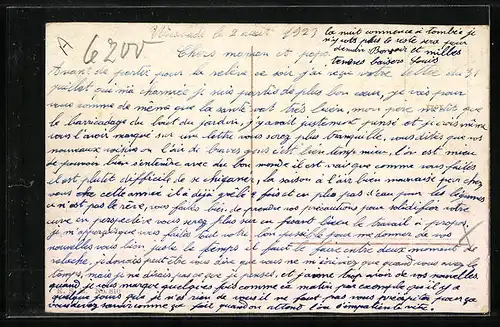 le 2 août 1923
la nuit commence à tomber je
n'y vois plus le reste pour
demain Bonsoir et milles
tendres baisers Louis
A
6200
Chers maman et papa
Avant de partir pour la relève ce soir j'ai reçu votre lettre du 31
juillet qui m'a charmée je suis partie de plus bon cœur, je vois pour
vous comme de même que la santé va très bien, mon père
le barricadage du bout du jardin, j'y avait justement pensé et je crois même
vous l'avoir marqué sur un lettre vous serez plus tranquille, vous dites que vos
nouveaux voisins on l'air de braves gens c'est bien temp mieux, l'on est mieu
de pouvoir bien s'entendre avec du bon monde il est vrai que comme vous faites
il est plutot difficil de se chicaner, la saison à l'air bien mauvaise par chez
vous cette année il a déjà grêlé fois et en plus pas d'eau pour les légumes
ce n'est pas le rêve, vous faites bien de prendre vos précautions pour solidifier votre
cuve en perspective vous serez plus sur en fesant bien le travail propre,
je m'apperçois que vous faites tout votre bon possible pour me donner de vos
nouvelles vous bien juste le temps il faut le faire entre deux moment
relache, je devrais peut être vous dire que vous ne m'écriviez que quand vous avez le
temps, mais je ne dirais pas ce que je pense, et j'aime trop avoir de vos nouvelles
quand je vous marque quelques fois comme ce matin par exemple qu'il y a
quelque jours que je n'ai rien de vous il ne faut pas vous précipiter pour ça
vous savez comme ça fait quand on attend l'on s'impatiente vite.